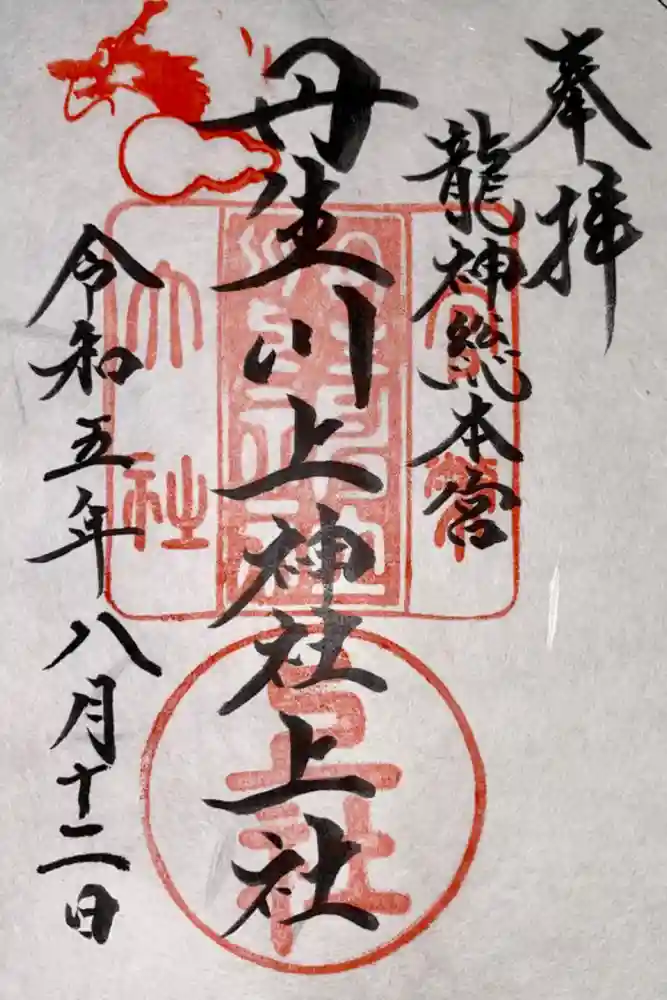 奉拝
龍神総本宮
丹生川上神社上社
令和五年八月十二日
大社
上社